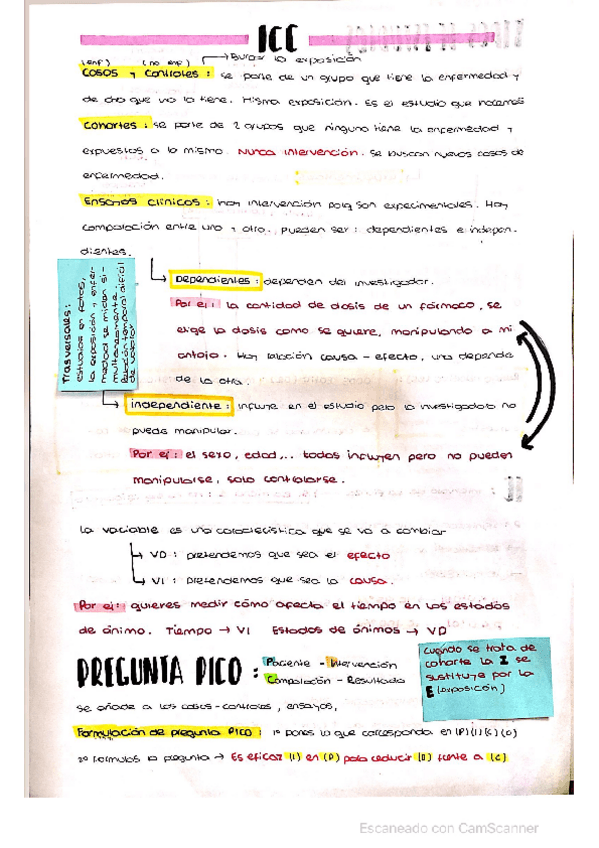 ICC
(enf) (no enf) Buscar la exposición
Casos y controles : se parte de un grupo que tiene la enfermedad y
de otro que no la tiene. Misma exposición. Es el estudio que hacemos
Cohortes : se parte de 2 grupos que ninguno tiene la enfermedad y
expuestos a lo mismo. Nunca intervención. Se buscan nuevos casos de
enfermedad.
Ensayos clínicos : hay intervención porq son experimentales. Hay
comparación entre uno y otro. pueden ser : dependientes e indepen.
dientes.
Trasversales:
estudios en fotos,
la exposición y enfer-
medad se miden si-
multáneamente.
Relación temporal difícil
de valorar
Dependientes : dependen del investigador.
Por ej : la cantidad de dosis de un fármaco, se
elige la dosis como se quiere, manipulando a mi
antojo. Hay relación causa - efecto, una depende
de la otra.
independiente : influye en el estudio pero la investigadora no
puede manipular.
Por ej : el sexo, edad,.. todas influyen pero no pueden
manipularse, solo controlarse.
La variable es una característica que se va a cambiar
VD : pretendemos que sea el efecto
VI : pretendemos que sea la causa.
Por ej : quieres medir cómo afecta el tiempo en los estados
de ánimo. Tiempo → VI Estados de ánimos → VD
PREGUNTA PICO : Paciente - Intervención
Comparación - Resultado
cuando se trata de
cohorte la I se
sustituye por la
E (exposición)
se añade a los casos-controles, ensayos,
Formulación de pregunta PICO : 1º pones lo que corresponda en (P)(I)(C)(O)
2º formulas la pregunta → Es eficaz (I) en (P) para reducir (O) frente a (C)
Escaneado con CamScanner